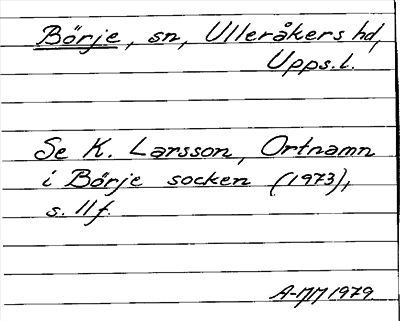 Börje, sn, Ulleråkers hd,
Upps. l.
Se K. Larsson, Ortnamn
i Börje socken (1973),
s. 11 f.
1979